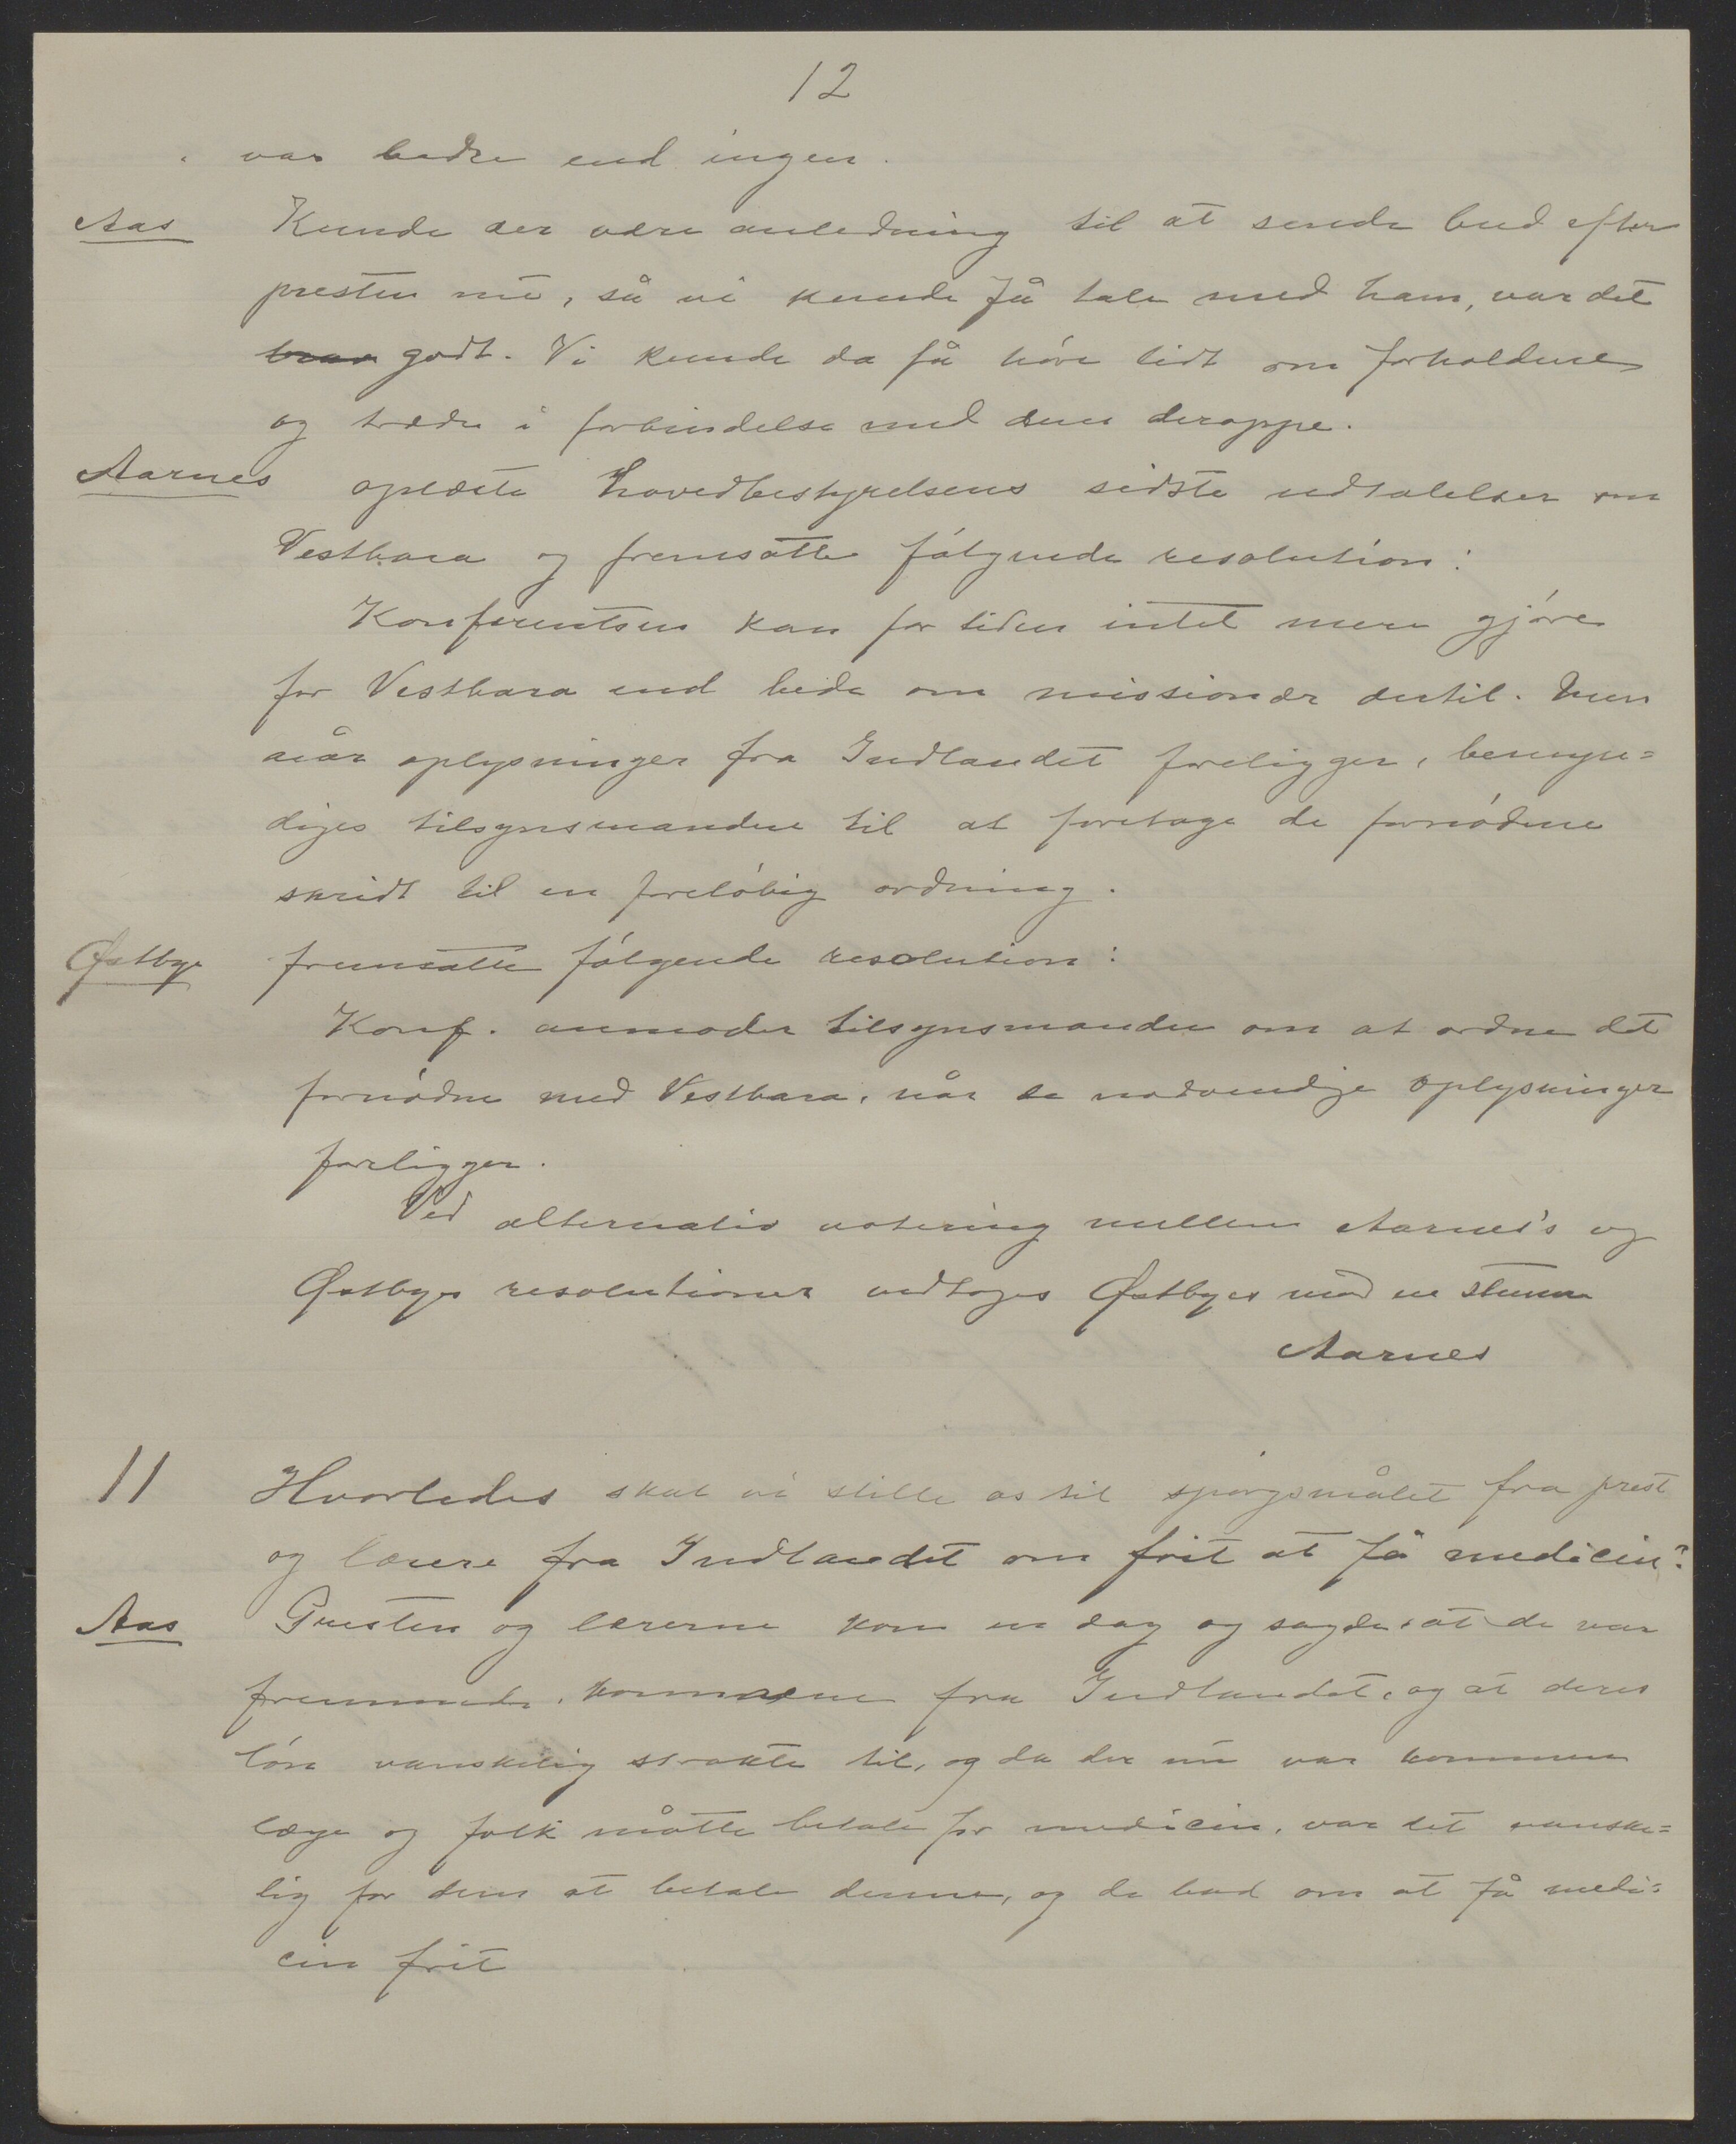 12
var bedre end ingen.
Aas Kunde der være anledning til at sende bud efter
presten nu, så vi kunde få tale med ham, var det
godt. Vi kunde da få høre lidt om forholdene
og træde i forbindelse med dem deroppe.
Aarnes oplæste hovedbestyrelsens sidste udtalelser om
Vestbara og fremsatte følgende resolution:
Konferentsen kan for tiden intet mere gjøre
for Vestbara end bede om missionær dertil. Men
når oplysninger fra Indlandet foreligger, bemyn=
diges tilsynsmanden til at foretage de fornødne
skridt til en foreløbig ordning.
Østbye fremsatte følgende resolution:
Konf. anmoder tilsynsmanden om at ordne det
fornødne med Vestbara, når de nødvendige oplysninger
foreligger.
Ved alternativ votering mellem Aarnes's og
Østbyes resolutioner vedtoges Østbyes mod en stemme
Aarnes
11 Hvorledes skal vi stille os til spørgsmålet fra prest
og lærere fra Indlandet om frit at få medicin?
Aas Presten og lærerne kom en dag og sagde, at de var
fremmede, komne fra Indlandet, og at deres
løn vanskelig strakte til, og da der nu var kommen
læge og folk måtte betale for medicin, var det vanske=
lig for dem at betale denne, og de bad om at få medi=
cin frit